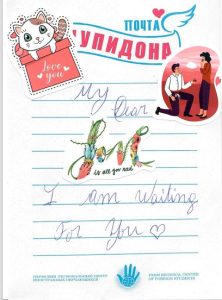 ПОЧТА
КУПИДОНА
Love
you
My
Dear
love
is all you need
I am Waiting
For You ♡
ПЕРМСКИЙ РЕГИОНАЛЬНЫЙ ЦЕНТР
ИНОСТРАННЫХ ОБУЧАЮЩИХСЯ
PERM REGIONAL CENTER
OF FOREIGN STUDENTS